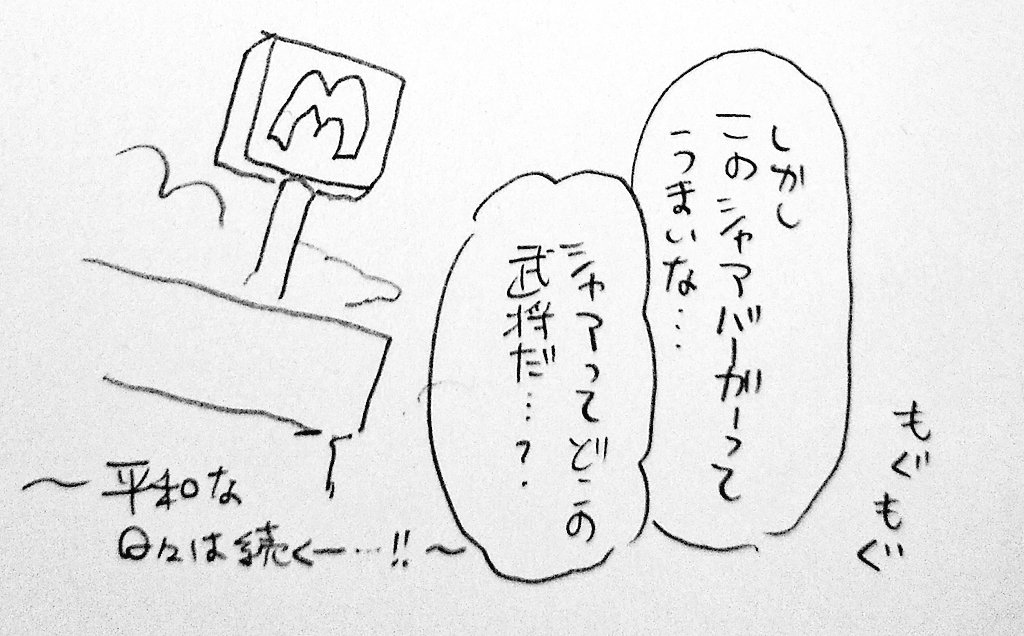 M
しかし
このシャアバーガーって
うまいな…
もぐもぐ
シャアってどこの
武将だ…？
〜平和な
日々は続くー…!!〜